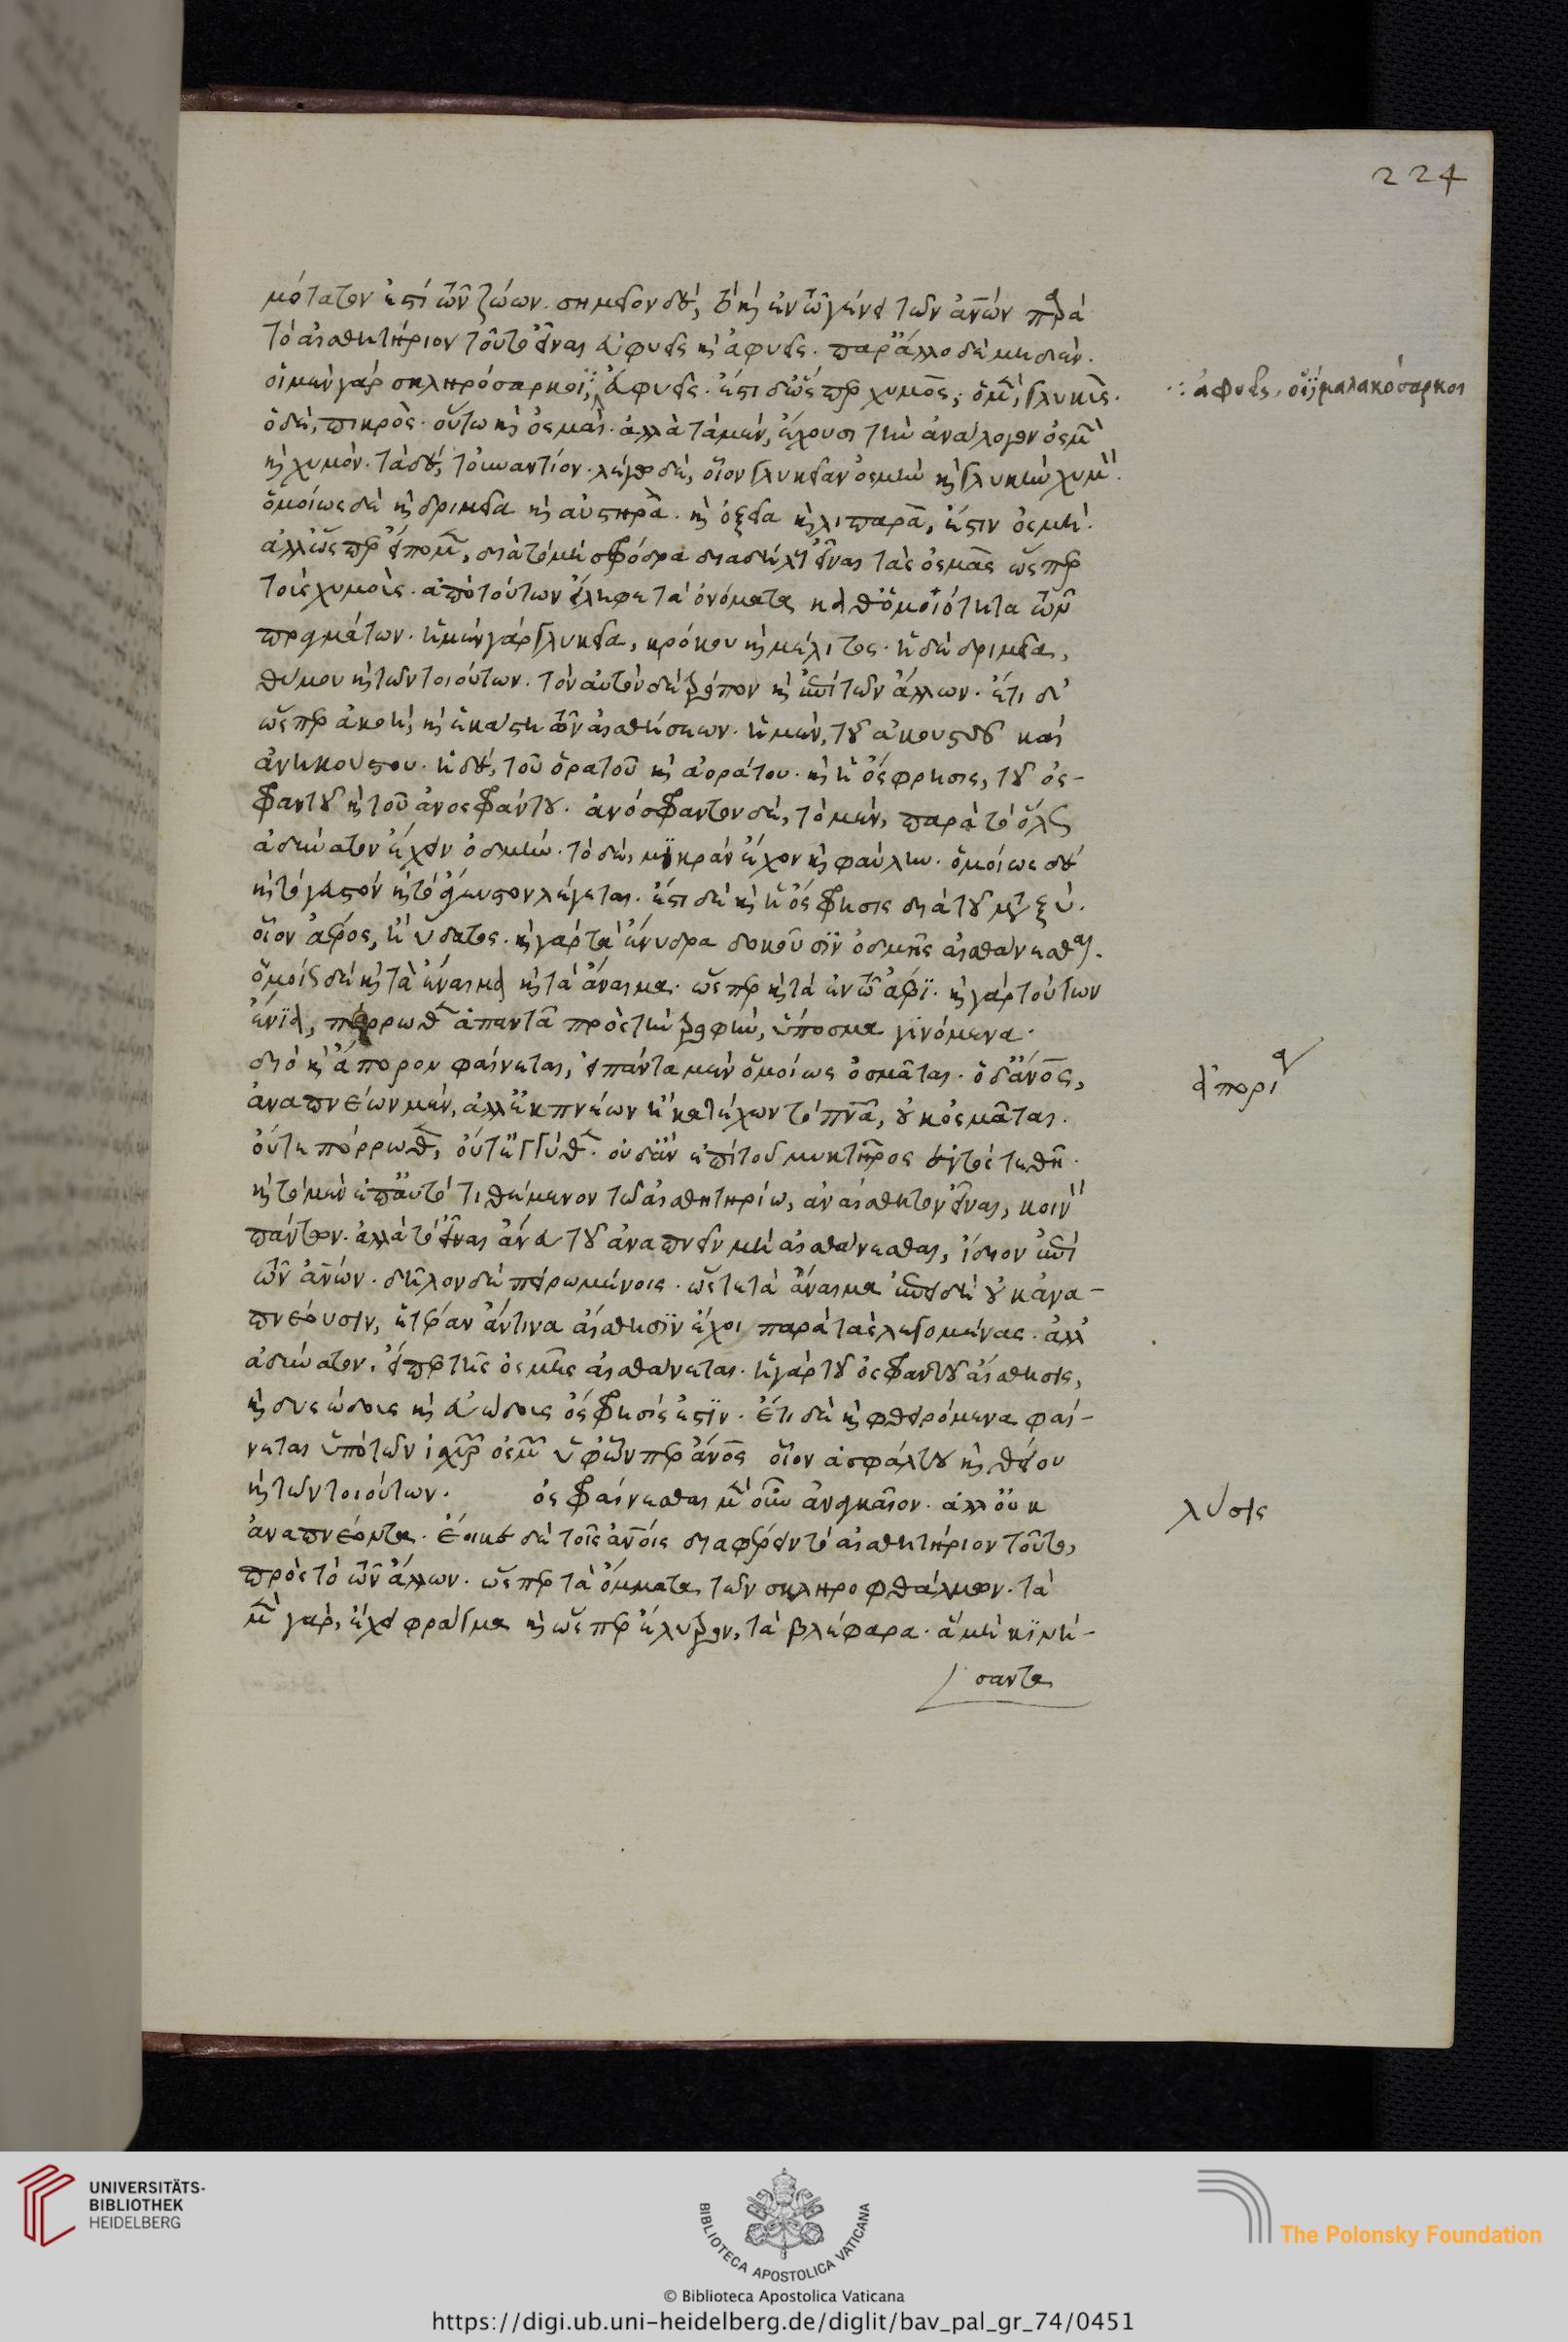 224
μότατον ἐστί τῶν ζώων. σημεῖον δέ, τὸ καὶ ἐν τῷ γένει τῶν ἀν̅ων παρὰ
τὸ αἰσθητήριον τοῦτο εἶναι εὐφυεῖς καὶ ἀφυεῖς. παρ' ἄλλο δὲ μηδέν.
οἱ μὲν γὰρ σκληρόσαρκοι, ἀφυεῖς. ἔστι δ' ὥσπερ χυμὸς, ὁ μὲν, γλυκὺς.
ὁ δὲ, πικρὸς. οὕτω καὶ ὀσμαὶ. ἀλλὰ τὰ μὲν, ἔχουσι τὴν ἀνάλογον ὀσμὴν
καὶ χυμόν. τὰ δέ, τοὐναντίον. λέγω δὲ, οἷον γλυκεῖαν ὀσμὴν καὶ γλυκὺν χυμὸν.
ὁμοίως δὲ καὶ δριμεῖα καὶ αὐστηρὰ. καὶ ὀξεῖα καὶ λιπαρὰ, ἔστιν ὀσμή.
ἀλλ' ὥσπερ εἴπομεν, διὰ τὸ μὴ σφόδρα διαδήλους εἶναι τὰς ὀσμὰς ὥσπερ
τοὺς χυμοὺς. ἀπὸ τούτων εἴληφε τὰ ὀνόματα καθ' ὁμοιότητα τῶν
πραγμάτων. ἡ μὲν γὰρ γλυκεῖα, κρόκου καὶ μέλιτος. ἡ δὲ δριμεῖα,
θύμου καὶ τῶν τοιούτων. τὸν αὐτὸν δὲ τρόπον καὶ ἐπὶ τῶν ἄλλων. ἔτι δ'
ὥσπερ ἀκοὴ, καὶ ἑκάστη τῶν αἰσθήσεων. ἡ μὲν, τοῦ ἀκουστοῦ καὶ
ἀνηκούστου. ἡ δέ, τοῦ ὁρατοῦ καὶ ἀοράτου. καὶ ἡ ὄσφρησις, τοῦ ὀσ-
φραντοῦ καὶ τοῦ ἀνοσφράντου. ἀνόσφραντον δὲ, τὸ μὲν, παρὰ τὸ ὅλως
ἀδύνατον ἔχειν ὀσμήν. τὸ δὲ, μικρὰν ἔχον καὶ φαύλην. ὁμοίως δέ
καὶ τὸ γευστόν καὶ τὸ ἄγευστον λέγεται. ἔστι δὲ καὶ ἡ ὄσφρησις διὰ τοῦ μεταξύ.
οἷον ἀέρος, ἢ ὕδατος. καὶ γὰρ τὰ ἔνυδρα δοκοῦσιν ὀσμῆς αἰσθάνεσθαι.
ὁμοίως δὲ καὶ τὰ ἔναιμα καὶ τὰ ἄναιμα. ὥσπερ καὶ τὰ ἐν τῷ ἀέρι. καὶ γὰρ τούτων
ἔνια, πόρρωθεν ἀπαντᾶ πρὸς τὴν τροφὴν, ὕποσμα γινόμενα.
διὸ καὶ ἄπορον φαίνεται, εἰ πάντα μὲν ὁμοίως ὀσμᾶται. ὁ δ' ἀν̅ος,
ἀναπνέων μὲν, ἀλλ' ἐκπνέων ἢ κατέχων τὸ πν̅α, οὐκ ὀσμᾶται.
οὔτε πόρρωθεν, οὔτ' ἐγγύθεν. οὐδ' ἂν ἐπὶ τοῦ μυκτῆρος ἐντὸς τεθῆ.
καὶ τὸ μὲν ἐπ' αὐτὸ τιθέμενον τῶ αἰσθητηρίω, ἀναίσθητον εἶναι, κοινὸν
πάντων. ἀλλὰ τὸ εἶναι ἄνευ τοῦ ἀναπνεῖν μὴ αἰσθάνεσθαι, ἴδιον ἐπὶ
τῶν ἀν̅ων. δῆλον δὲ πειρωμένοις. ὥστε τὰ ἄναιμα ἐπειδὴ οὐκ ἀνα-
πνέουσιν, ἑτέραν ἄν τινα αἴσθησιν ἔχοι παρὰ τὰς λεγομένας. ἀλλ'
ἀδύνατον. εἴπερ τῆς ὀσμῆς αἰσθάνεται. ἡ γὰρ τοῦ ὀσφραντοῦ αἴσθησις,
καὶ δυσώδους καὶ εὐώδους ὄσφρησίς ἐστιν. ἔτι δὲ καὶ φθειρόμενα φαί-
νεται ὑπὸ τῶν ἰσχυρῶν ὀσμῶν ὑφ' ὧνπερ ἀν̅ος οἷον ἀσφάλτου καὶ θείου
καὶ τῶν τοιούτων. ὀσφραίνεσθαι μὲν οὖν ἀναγκαῖον. ἀλλ' οὐκ
ἀναπνέοντα. ἔοικε δὲ τοῖς ἀν̅οις διαφέρειν τὸ αἰσθητήριον τοῦτο,
πρὸς τὸ τῶν ἄλλων. ὥσπερ τὰ ὄμματα τῶν σκληροφθάλμων. τὰ
μὲν γὰρ, ἔχει φράγμα καὶ ὥσπερ ἔλυτρον, τὰ βλέφαρα. ἃ μὴ κινή-
σαντα
∴ εὐφυεῖς, οἱ μαλακόσαρκοι
ἀπορία
λύσις
UNIVERSITÄTS-
BIBLIOTHEK
HEIDELBERG
BIBLIOTECA APOSTOLICA VATICANA
The Polonsky Foundation
© Biblioteca Apostolica Vaticana
https://digi.ub.uni-heidelberg.de/diglit/bav_pal_gr_74/0451